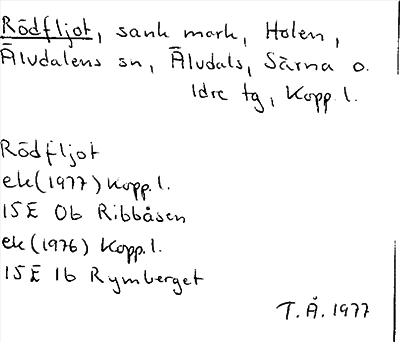 Rödfljot, sank mark, Holen,
Älvdalens sn, Älvdals, Särna o.
Idre tg, Kopp. l.
Rödfljot
ek (1977) Kopp. l.
15E 0b Ribbåsen
ek (1976) Kopp. l.
15E 1b Rymberget
T.Å. 1977